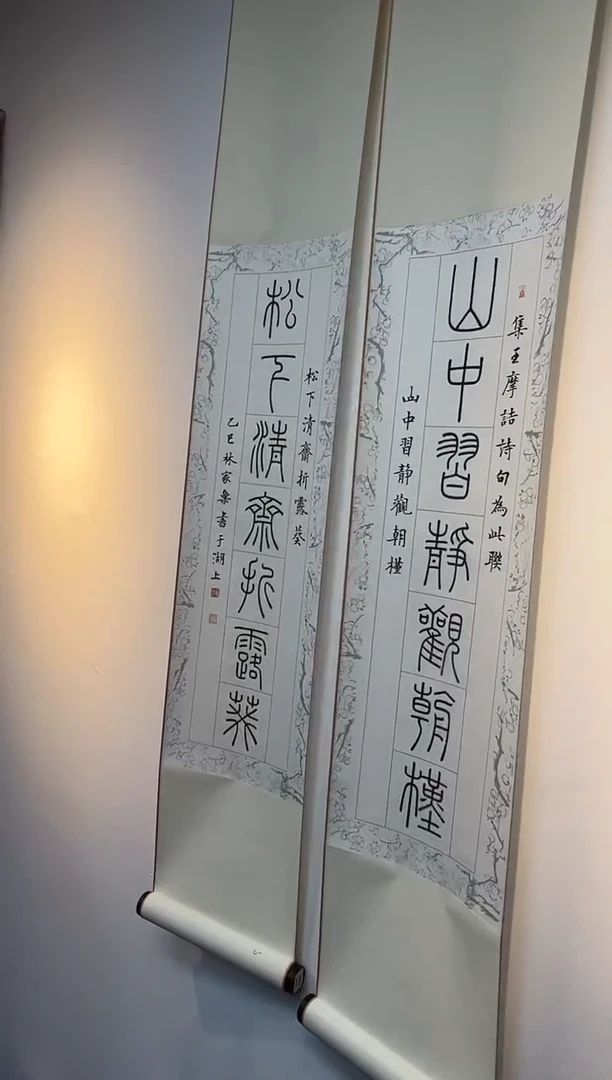 集王摩詰詩句為此聯
山中習靜觀朝槿
山中習靜觀朝槿
松下清齋折露葵
松下清齋折露葵
乙巳林家樂書于湖上